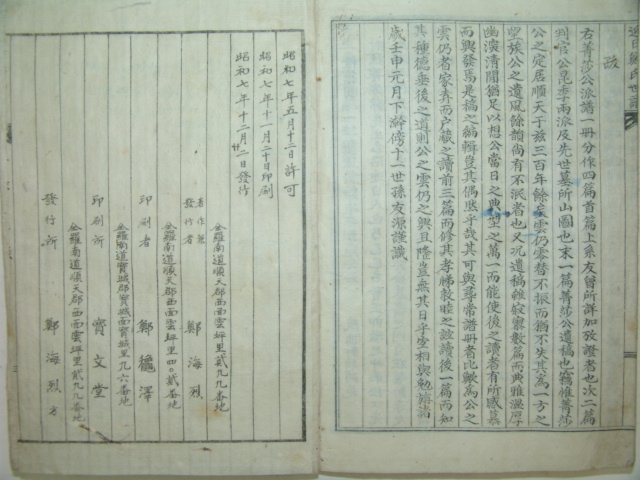 跋
右菁莎公派譜一冊分作四篇首篇上系友曾所詳加攷證者也次二篇
判官公昆季兩派及先世墓所山圖也末一篇菁莎公遺稿也竊惟菁莎
公之定居順天于玆三百年餘矣雲仍零替不振而猶不失其爲一方之
望族公之遺風餘韻尙有不泯者也又况遺稿雖寂寥數篇而典雅溫厚
幽演淸閒猶足以想公當日之典型之萬一而能使後之讀者有所感慕
而興發焉是搞之編輯豈其偶哉乎哉其可與尋常譜冊者比歟爲公之
雲仍者家弆而戶藏之讀前三篇而修其孝睇敦睦之誼讀後一篇而知
其種德垂後之道則公之雲仍之興且隆豈無其日乎室相與勉旃
歲壬申元月下澣傍十一世孫友源謹識
昭和七年五月十二日許可
昭和七年十一月二十日印刷
昭和七年十二月二日發行
全羅南道順天郡西面雲坪里貳九九番地
著作兼
發行者 鄭海烈
全羅南道順天郡西面雲坪里四〇貳番地
印刷者 鄭 澤
全羅南道寶城郡寶城面寶城里九六番地
印刷所 寶文堂
全羅南道順天郡西面雲坪里貳九九番地
發行所 鄭海烈方